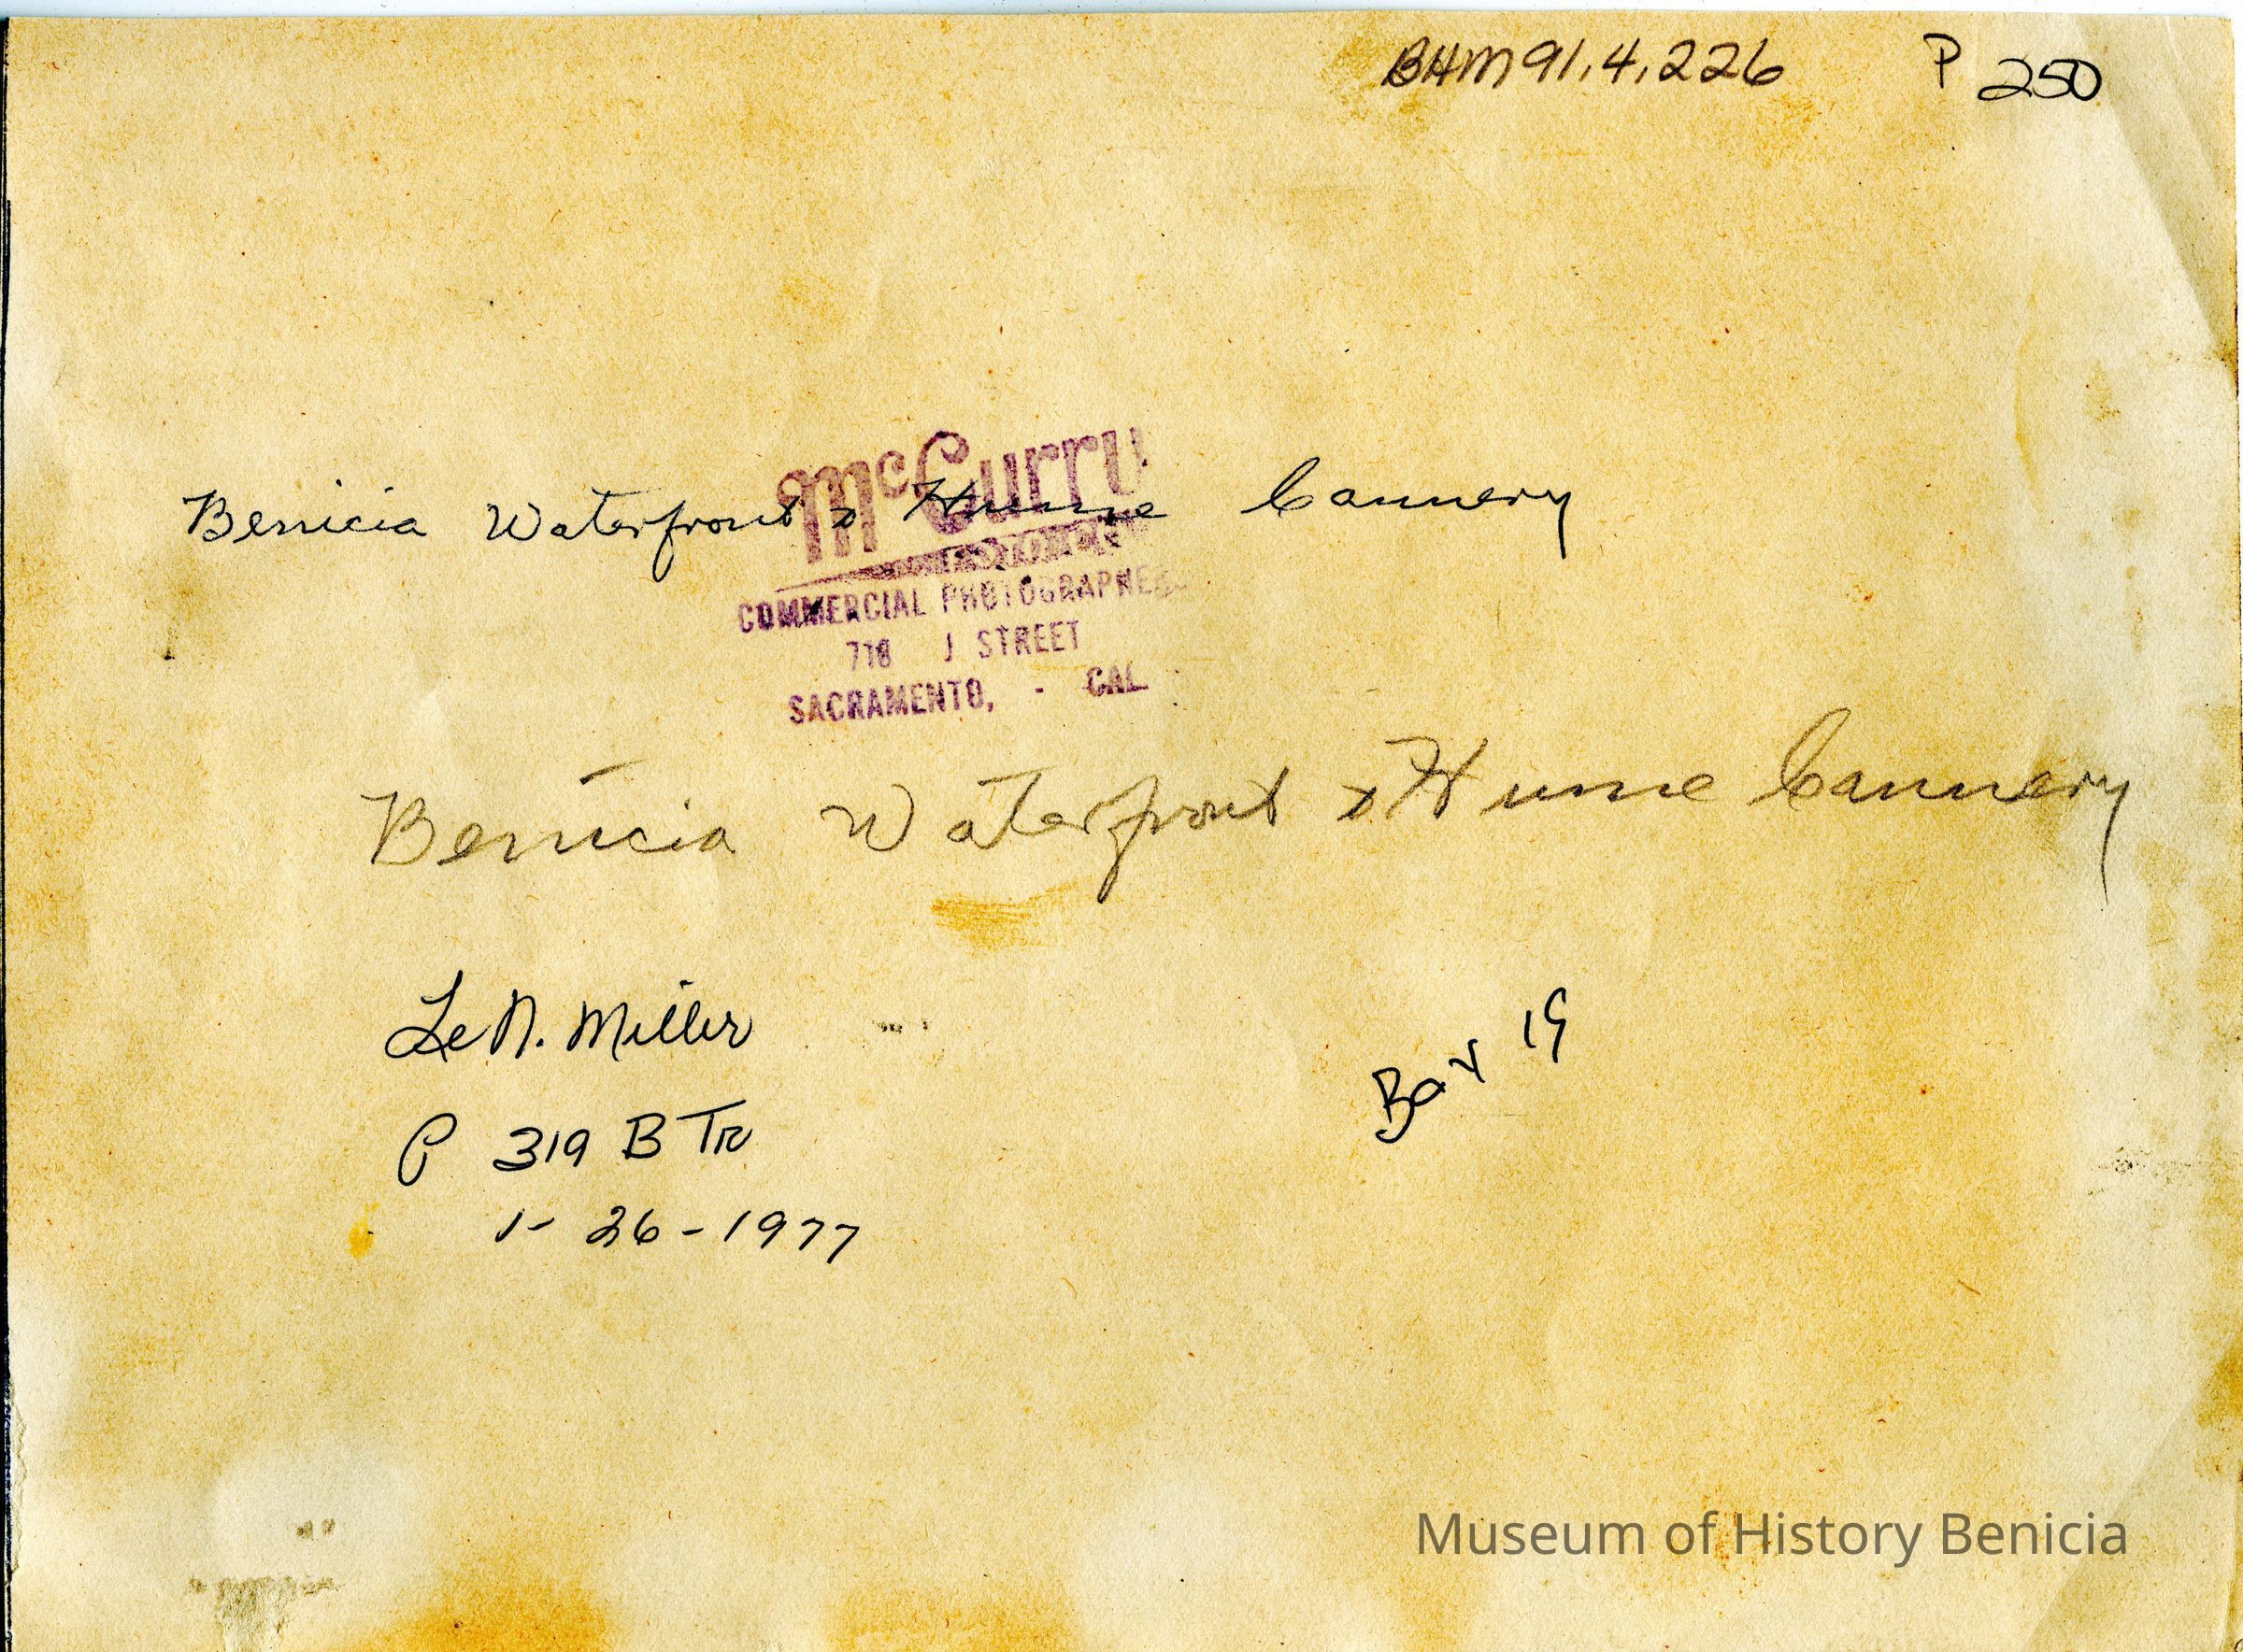 BHM 91.4.226 P 250
McCurry
Benicia Waterfront & Hume Cannery
COMMERCIAL PHOTOGRAPHERS
718 J STREET
SACRAMENTO, - CAL
Benicia Waterfront & Hume Cannery
Le N. Miller
Box 19
P 319 B Tr
1-26-1977
Museum of History Benicia